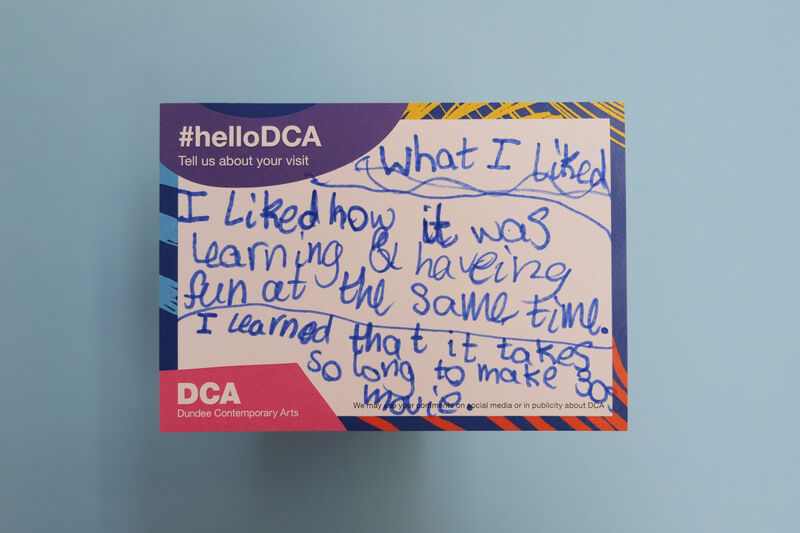 #helloDCA
Tell us about your visit
What I liked
I Liked how it was
Learning & haveing
fun at the same time.
I Learned that it takes
so long to make 30s
movie
We may use your comments on social media or in publicity about DCA
DCA
Dundee Contemporary Arts